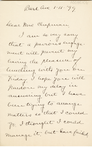 Park Ave. 5-11-'99
Dear Miss Chapman
I am so sorry
that a previous engage-
ment will prevent my
having the pleasure of
lunching with you on
Friday. I hope you will
pardon my delay in
answering but I have
been trying to arrange
matters so that I could
go. I thought I could
manage it but have failed